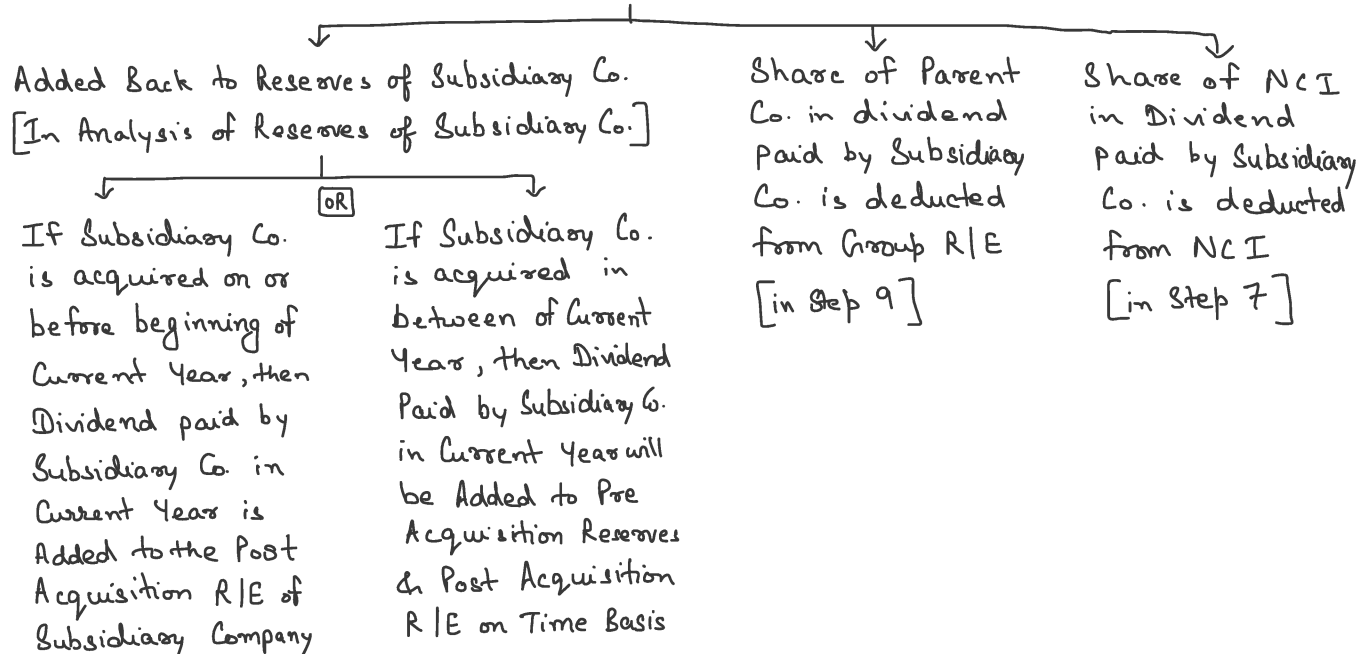 Added Back to Reserves of Subsidiary Co.
[In Analysis of Reserves of Subsidiary Co.]
OR
If Subsidiary Co.
is acquired on or
before beginning of
Current Year, then
Dividend paid by
Subsidiary Co. in
Current Year is
Added to the Post
Acquisition R/E of
Subsidiary Company
If Subsidiary Co.
is acquired in
between of Current
Year, then Dividend
Paid by Subsidiary Co.
in Current Year will
be Added to Pre
Acquisition Reserves
& Post Acquisition
R/E on Time Basis
Share of Parent
Co. in dividend
paid by Subsidiary
Co. is deducted
from Group R/E
[in Step 9]
Share of NCI
in Dividend
paid by Subsidiary
Co. is deducted
from NCI
[in Step 7]